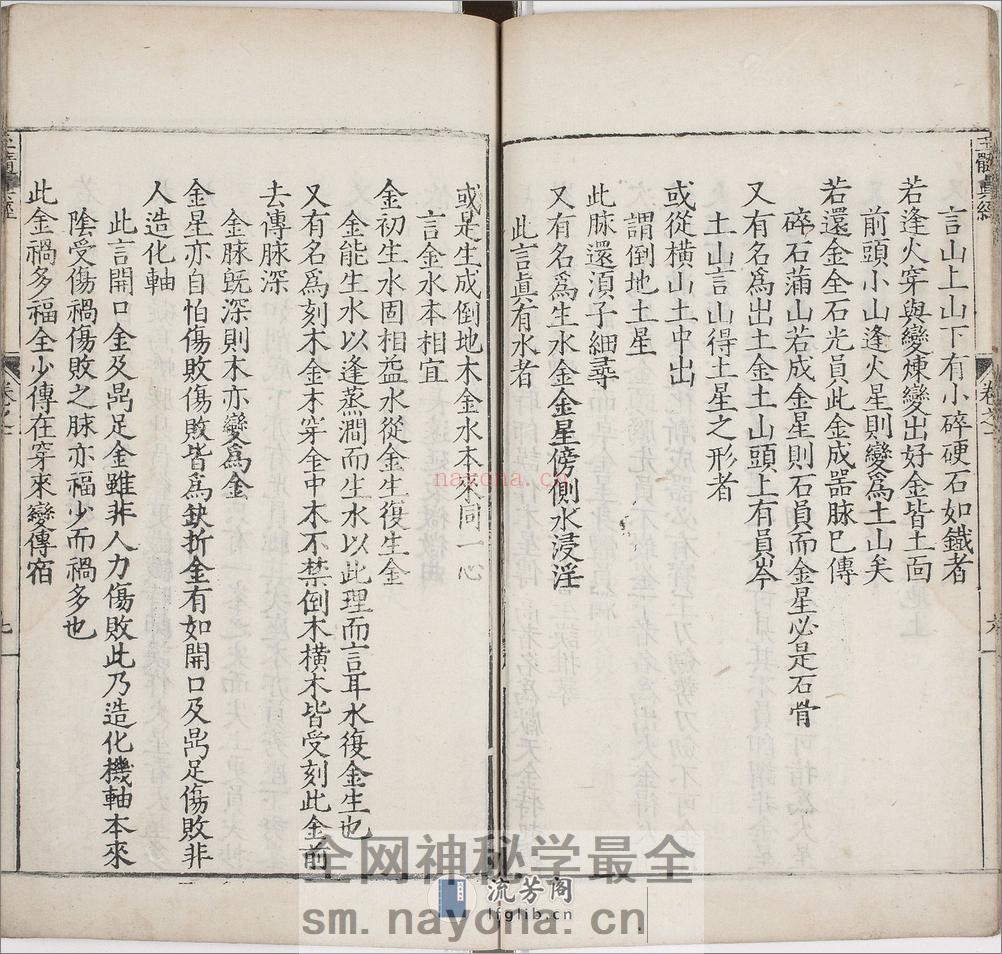 玉髓真經
言山上山下有小碎硬石如鐵者
若逢火穿與變棟變出好金皆土面
前頭小山逢火星則變為土山矣
若還金全石光員此金成噐脉巳傳
碎石蒲山若成金星則石員而金星必是石骨
又有名爲出土金土山頭上有員岑
土山言山得土星之形者
或從横山土中出
謂倒地土星
此脉還湏子細尋
又有名爲生水金金星傍側水浸淫
此言真有水者
卷之十
或是生成倒地木金水本來同一心
言金水本相宜
金初生水固相益水從金生復生金
金能生水以逢蒸潤而生水以此理而言耳水復金生也
又有名爲刻木金木穿金中木不禁倒木横木皆受刻此金前
去傳脉深
金脉旣深則木亦變爲金
金星亦自怕傷敗傷敗皆爲鈌折金有如開口及髇足傷敗非
人造化軸
此言開口金及髇足金雖非人力傷敗此乃造化機軸本來
陰受傷禍傷敗之脉亦福少而禍多也
此金禍多福全少傳在穿來變傳宿
nayona.cn
全网神秘学最全
流芳阁
lfglib.cn
sm.nayona.cn